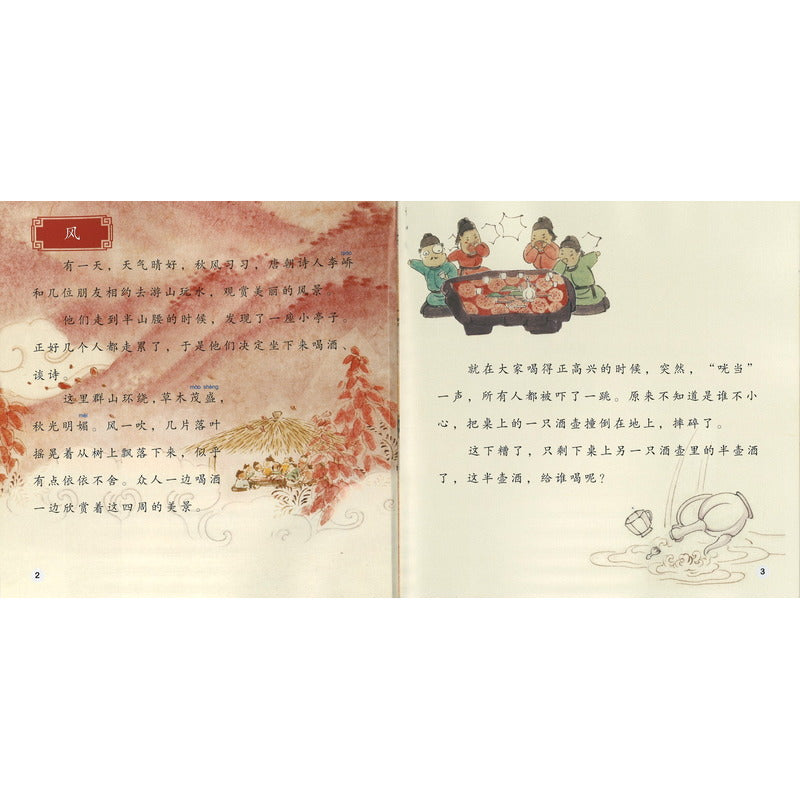 风
qiáo
有一天，天气晴好，秋风习习，唐朝诗人李峤
和几位朋友相约去游山玩水，观赏美丽的风景
他们走到半山腰的时候，发现了一座小亭子。
正好几个人都走累了，于是他们决定坐下来喝酒、
谈诗。
mào shèng
这里群山环绕，草木茂盛，
mèi
秋光明媚。风一吹，几片落叶
摇晃着从树上飘落下来，似乎
有点依依不舍。众人一边喝酒
一边欣赏着这四周的美景。
2
就在大家喝得正高兴的时候，突然，“咣当”
一声，所有人都被吓了一跳。原来不知道是谁不小
心，把桌上的一只酒壶撞倒在地上，摔碎了。
这下糟了，只剩下桌上另一只酒壶里的半壶酒
了，这半壶酒，给谁喝呢？
3